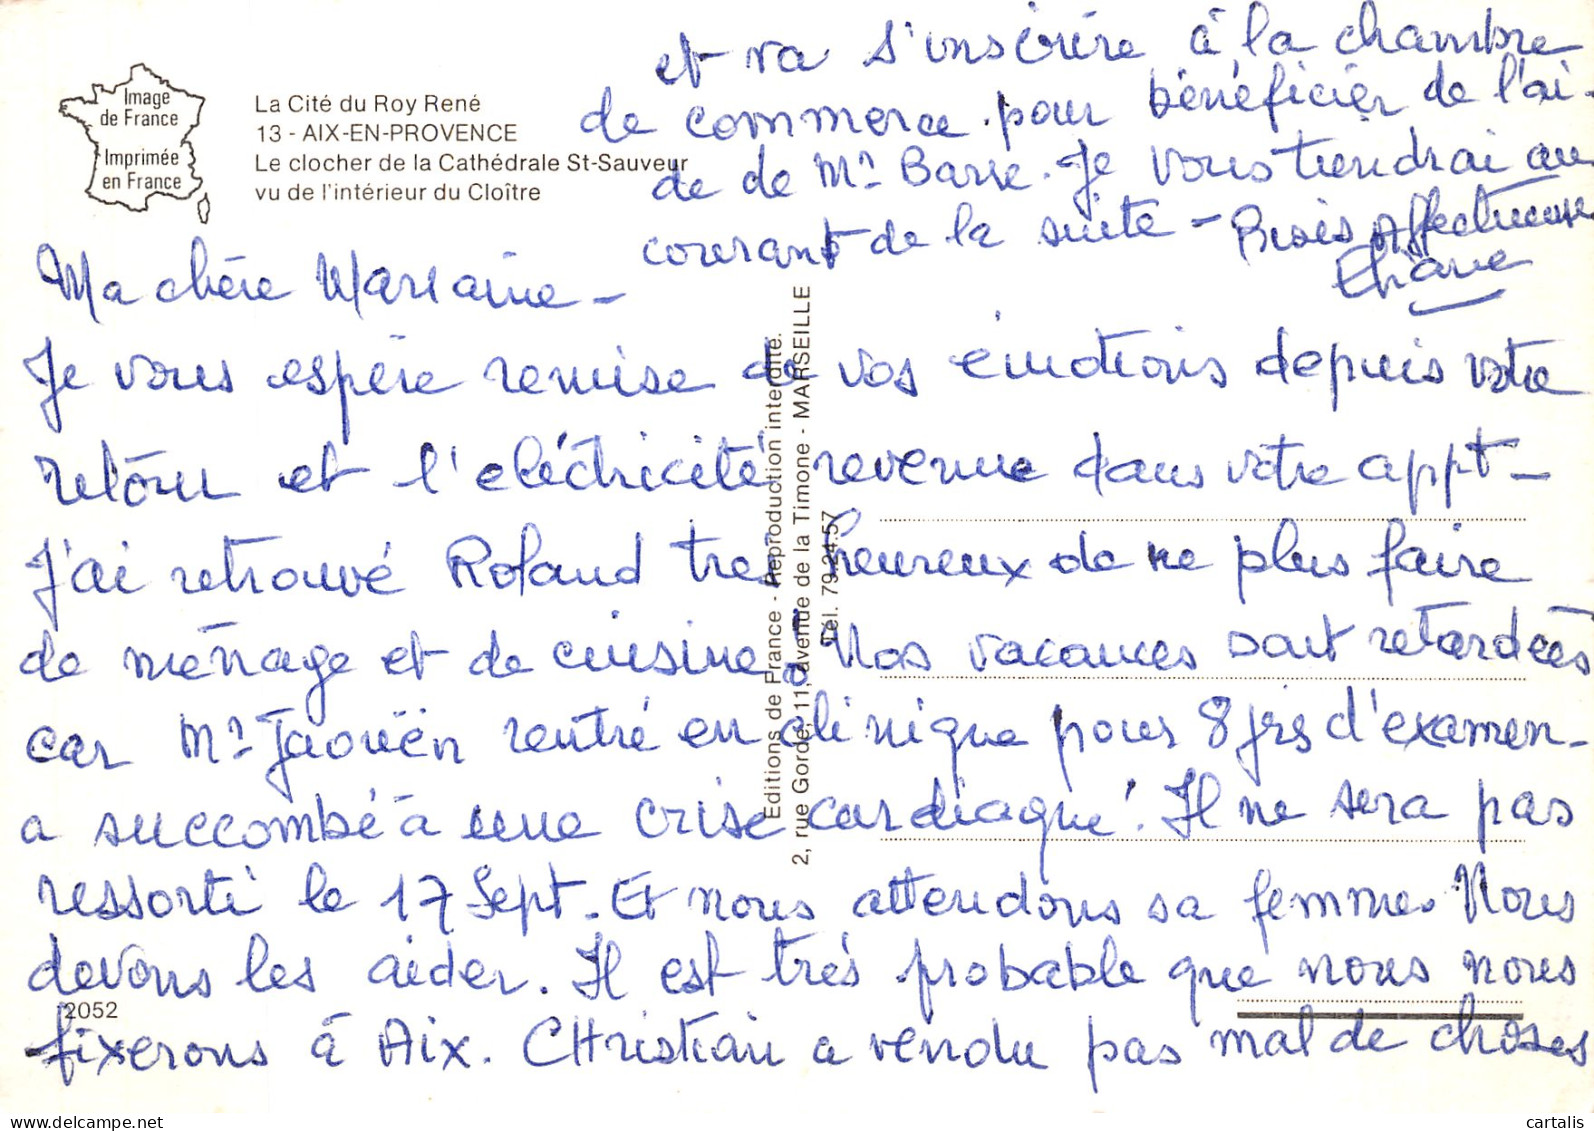 Image
de France
Imprimée
en France
La Cité du Roy René
13 - AIX-EN-PROVENCE
Le clocher de la Cathédrale St-Sauveur
vu de l'intérieur du Cloître
Ma chère
Je vous espère remise de vos émotions depuis votre
retour et l'électricité revenue dans votre appt -
J'ai retrouvé Roland tres heureux de ne plus faire
de ménage et de cuisine! Nos vacances sont retardées
car Mr Jaouën rentré en clinique pour 8 jrs d'examen -
a succombé à une crise cardiaque! Il ne sera pas
ressorti le 17 Sept. Et nous attendons sa femme. Nous
devons les aider. Il est très probable que nous nous
fixerons à Aix. CHristian a vendu pas mal de choses
et va s'inscrire à la chambre
de commerce pour bénéficier de l'ai-
de de Mr Barre. Je vous tiendrai au
courant de la suite - Bises affectueuses
Editions de France - Reproduction interdite.
2, rue Gorde, 11, avenue de la Timone - MARSEILLE
Tél. 79.24.57
2052
cartalis.com